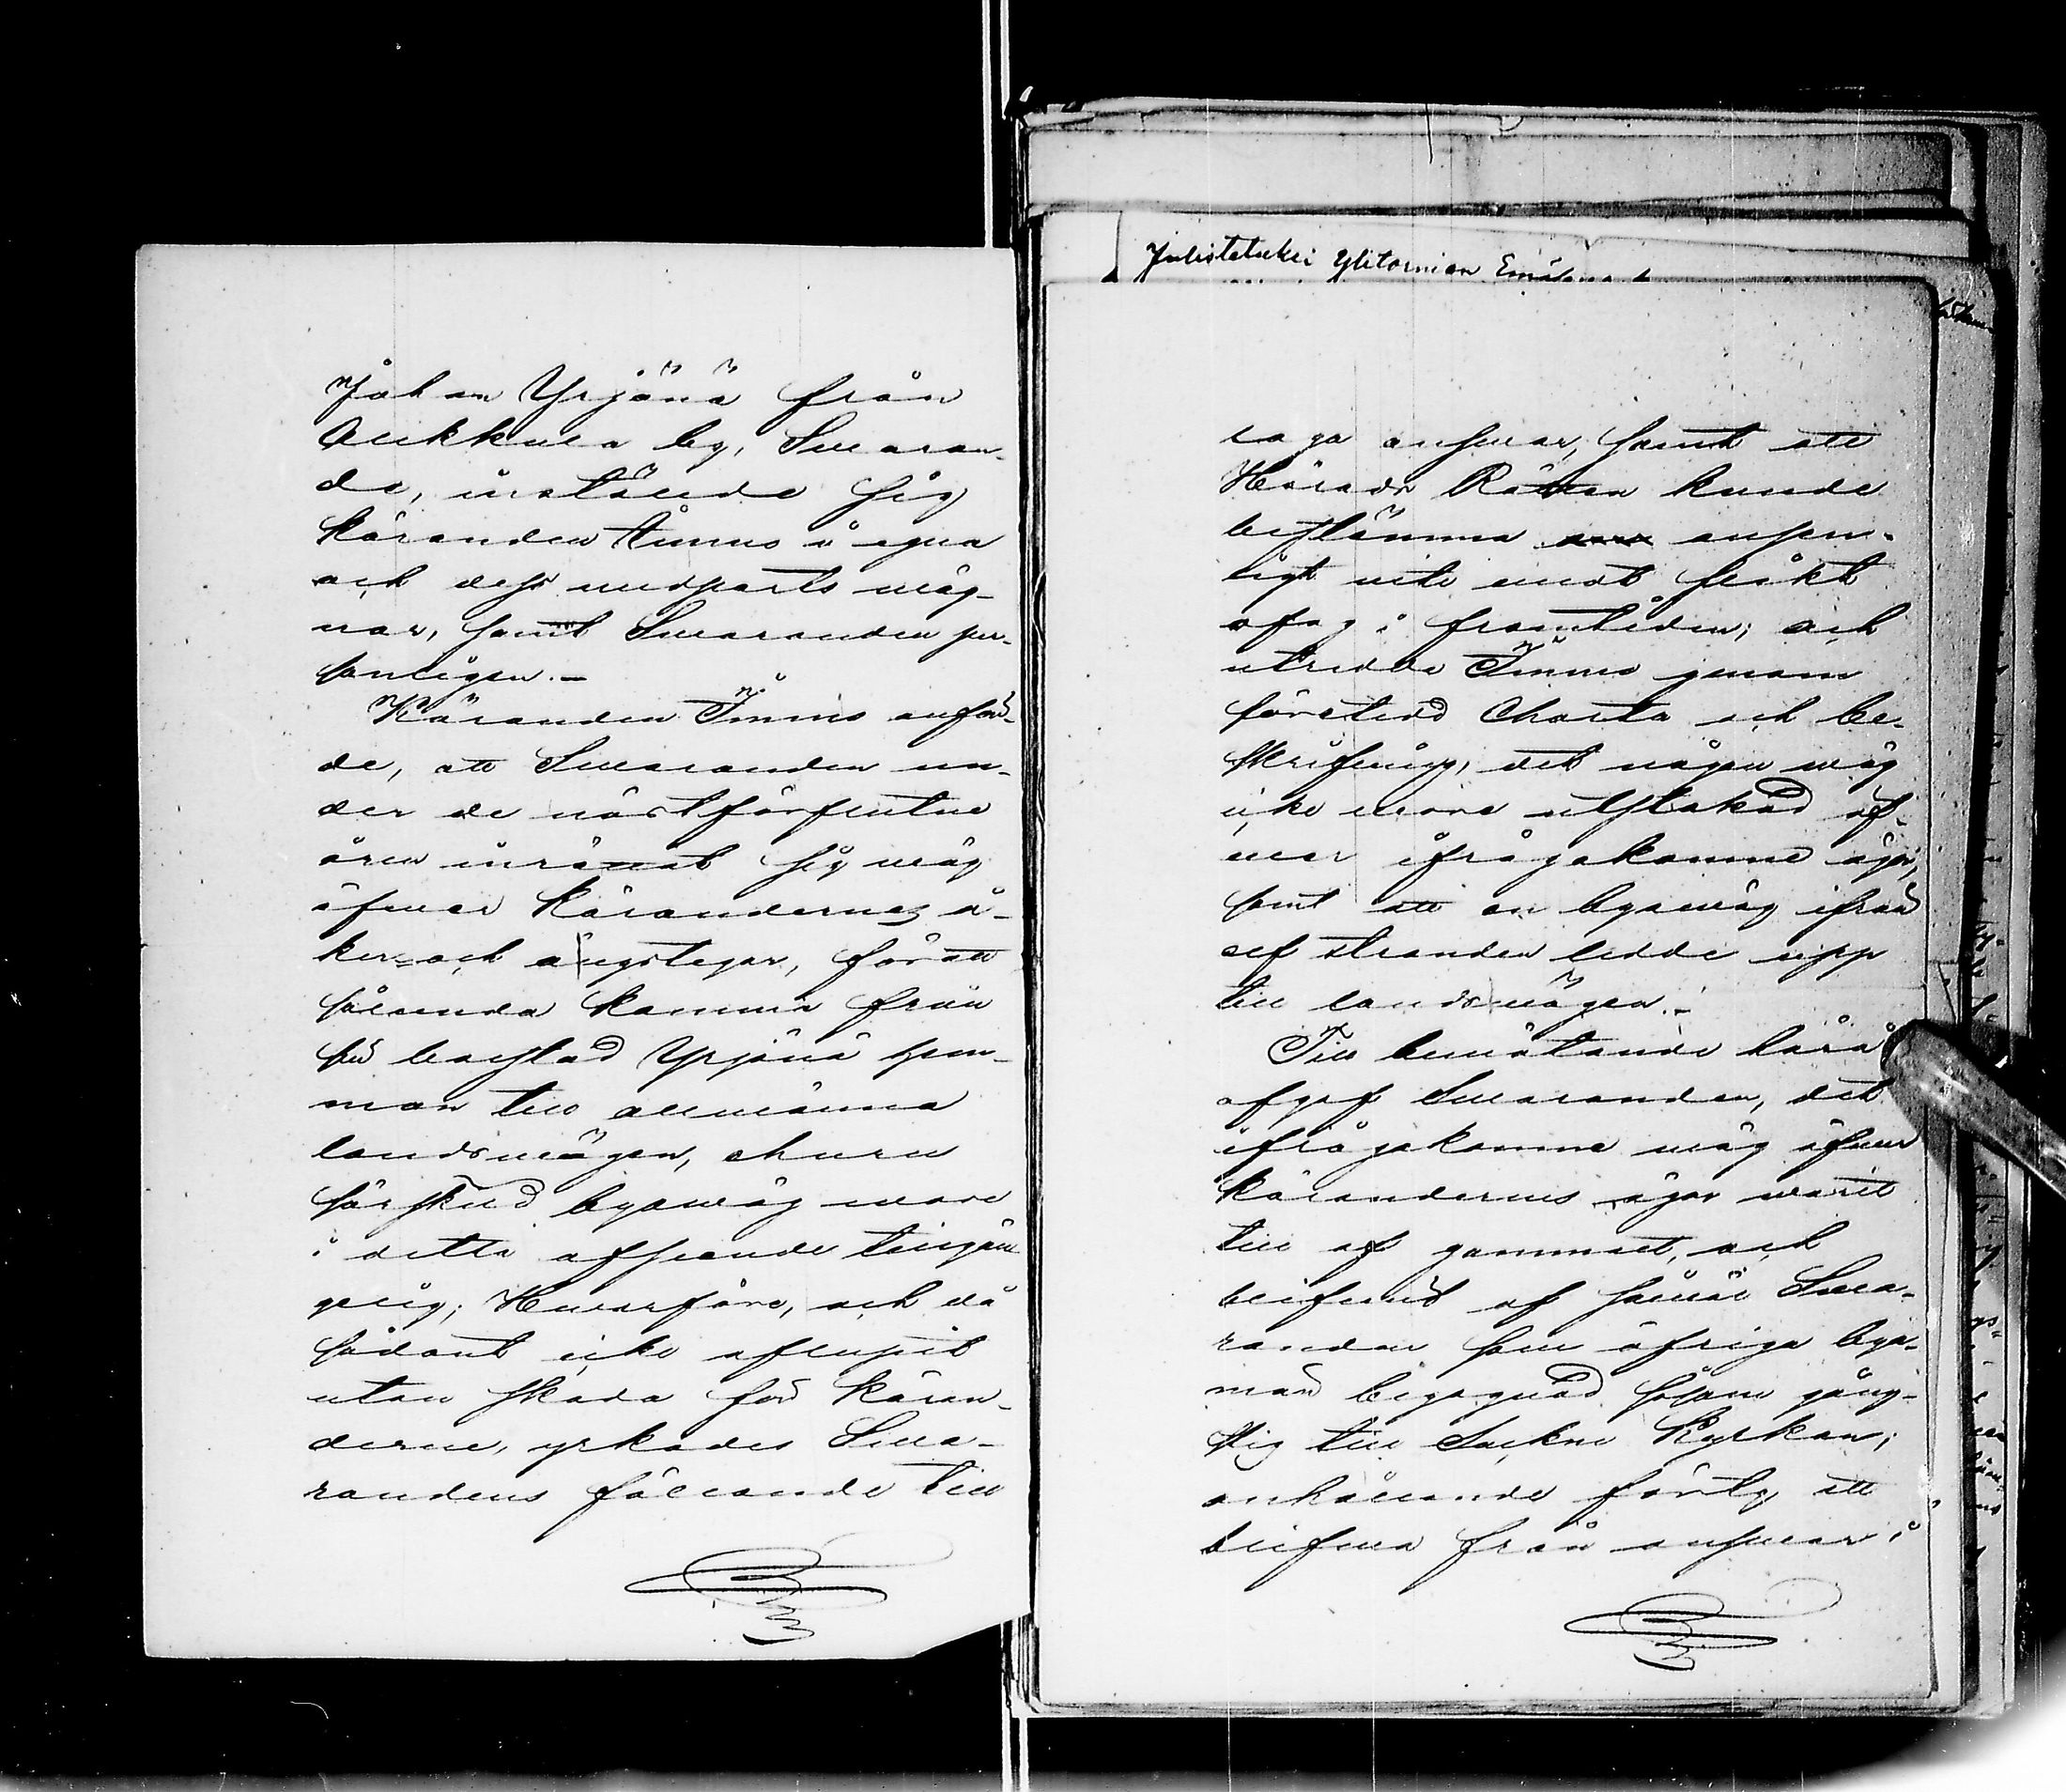 Johan Yrjänä från
Kukkula by, Swaran-
de, inställde sig
käranden Timus i egna
och dess medparts wäg-
nar, samt Swaranden per-
sonligen.–
Käranden Timus anför-
de, att Swaranden un-
der de nästförflutne
åren inrättat sig wäg
öfwer kärandernes å-
ker- och ängstegar, för att
sålunda komma från
sin bostad Yrjänä hem-
man till allmänna
landswägen, churu
särskild byawäg wore
i detta afseende tillgän-
gelig; Hwarföre, och då
sådant icke aflupit
utan skada för käran-
derne, yrkades Swa-
randens fällande till
Julistetukii Ylitornion
laga answar, samt att
Härads Rätten kunde
bestämma ansen-
ligt wite emot slikt
ofog i framtiden; och
utredde Timus genom
företedd Charta och be-
skrifning, det någon wäg
icke wore utstakad öf-
wer ifrågakomne ägor,
samt att en byawäg ifrån
elf stranden ledde upp
till landswägen.–
Till bemötande häraf
afgaf Swaranden, det
ifrågakomne wäg öfwer
kärandernes ägor warit
till af gammalt, och
blifwit af såwäl Swa-
randen som öfrige bya-
män begagnad såsom gång-
stig till Sockne Kyrkan;
anhållande förty att
blifwa från answar i